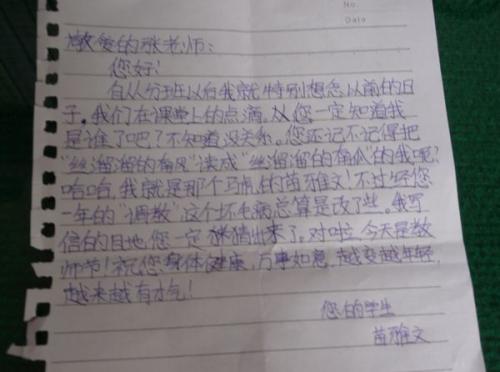 No.
Date
敬爱的张老师：
您好！
自从分班以后我就特别想念以前的日
子，我们在课堂上的点滴。从您一定知道我
是谁了吧？不知道没关系。您还记不记得把
“丝溜溜的南风”读成“丝溜溜的南瓜”的我呢？
哈哈，我就是那个马虎的苗雅文！不过经您
一年的“调教”这个坏毛病总算是改了些。我写
信的目地，您一定猜出来了。对啦，今天是教
师节！祝您身体健康，万事如意，越变越年轻，
越来越有才气！
您的学生
苗雅文